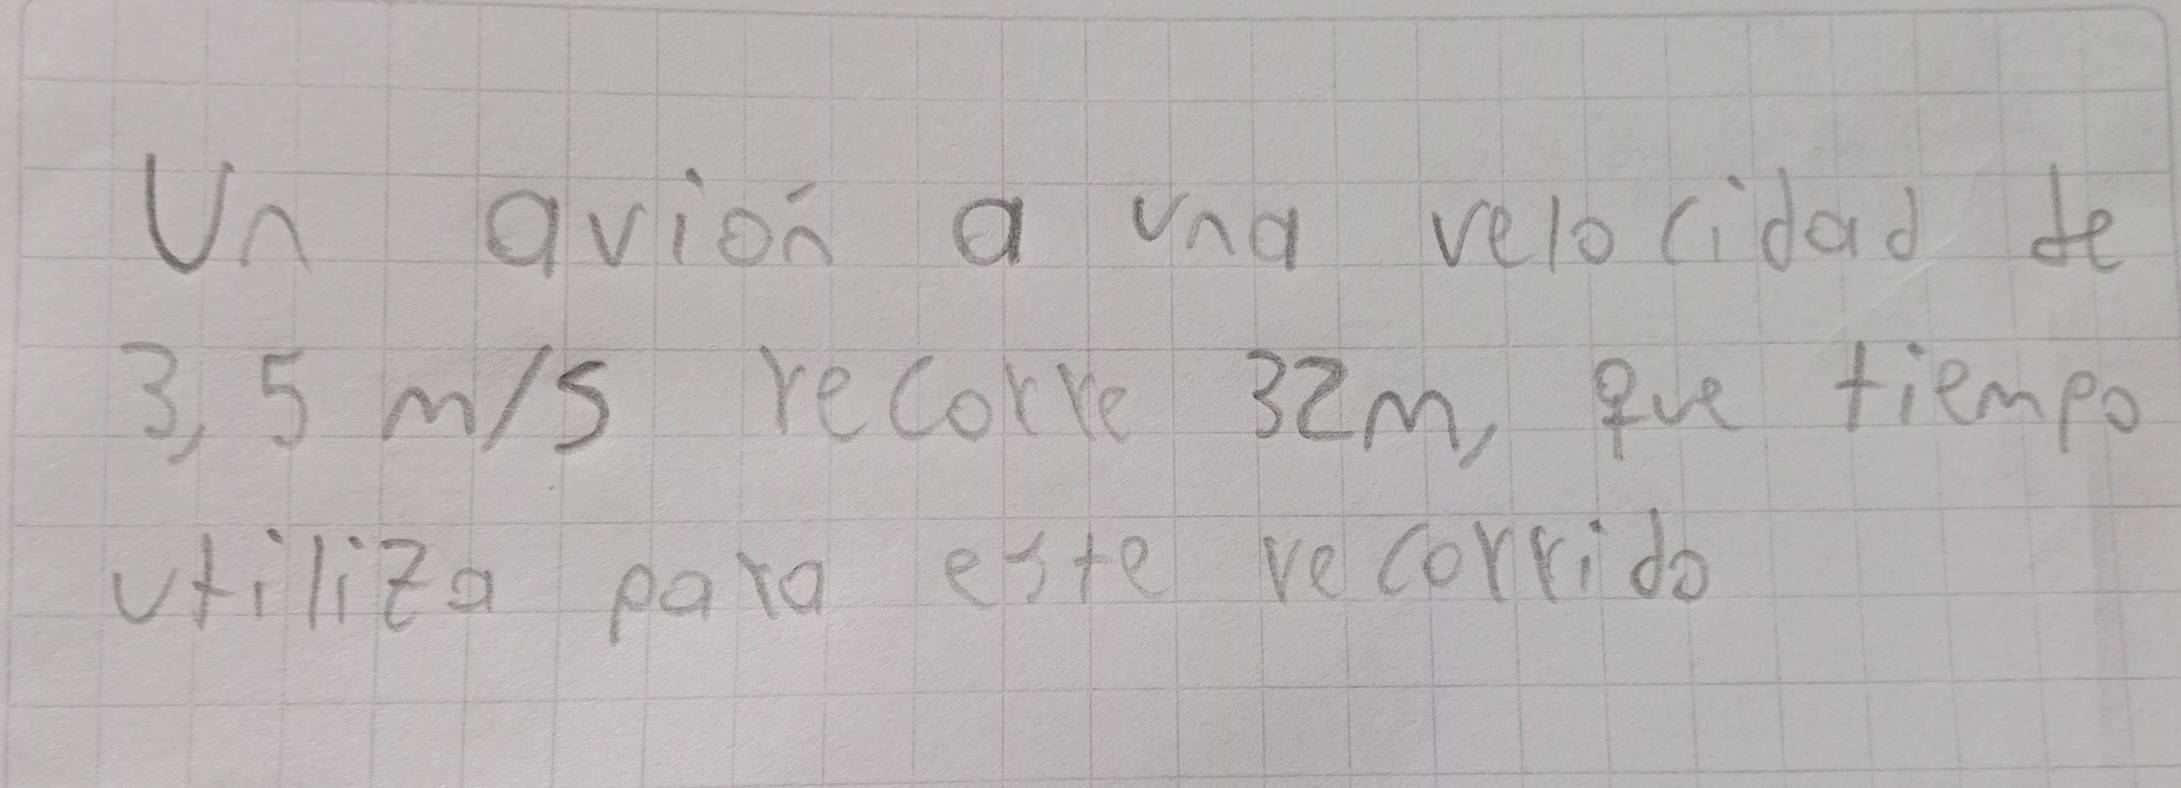 Un avión a una velocidad de
3,5 m/s recorre 32m, que tiempo
utiliza para este recorrido